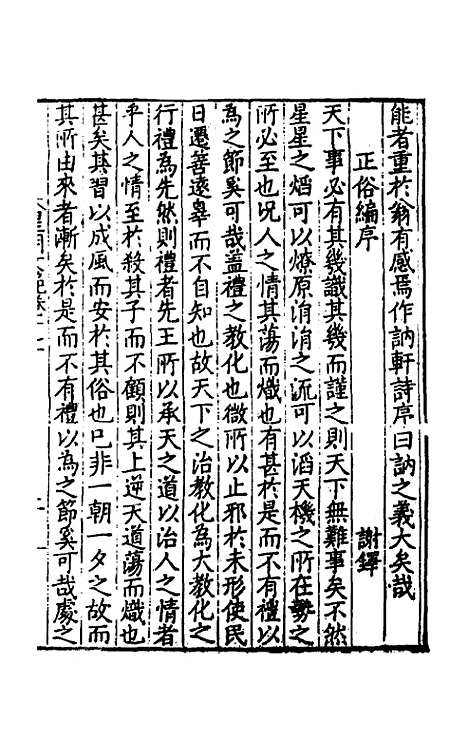 能者重於翁有感焉作訥軒詩序曰訥之義大矣哉
正俗編序 謝鐸
天下事必有其幾識其幾而謹之則天下無難事矣不然
星星之熖可以燎原涓涓之流可以滔天機之所在勢之
所必至也况人之情其蕩而熾也有甚於是而不有禮以
為之節奚可哉盖禮之教化也微所以止邪於未形使民
日遷善遠辠而不自知也故天下之治教化為大教化之
行禮為先然則禮者先王所以承天之道以治人之情者
乎人之情至於殺其子而不顧則其上逆天道蕩而熾也
甚矣其習以成風而安於其俗也已非一朝一夕之故而
其所由來者漸矣於是而不有禮以為之節奚可哉處之